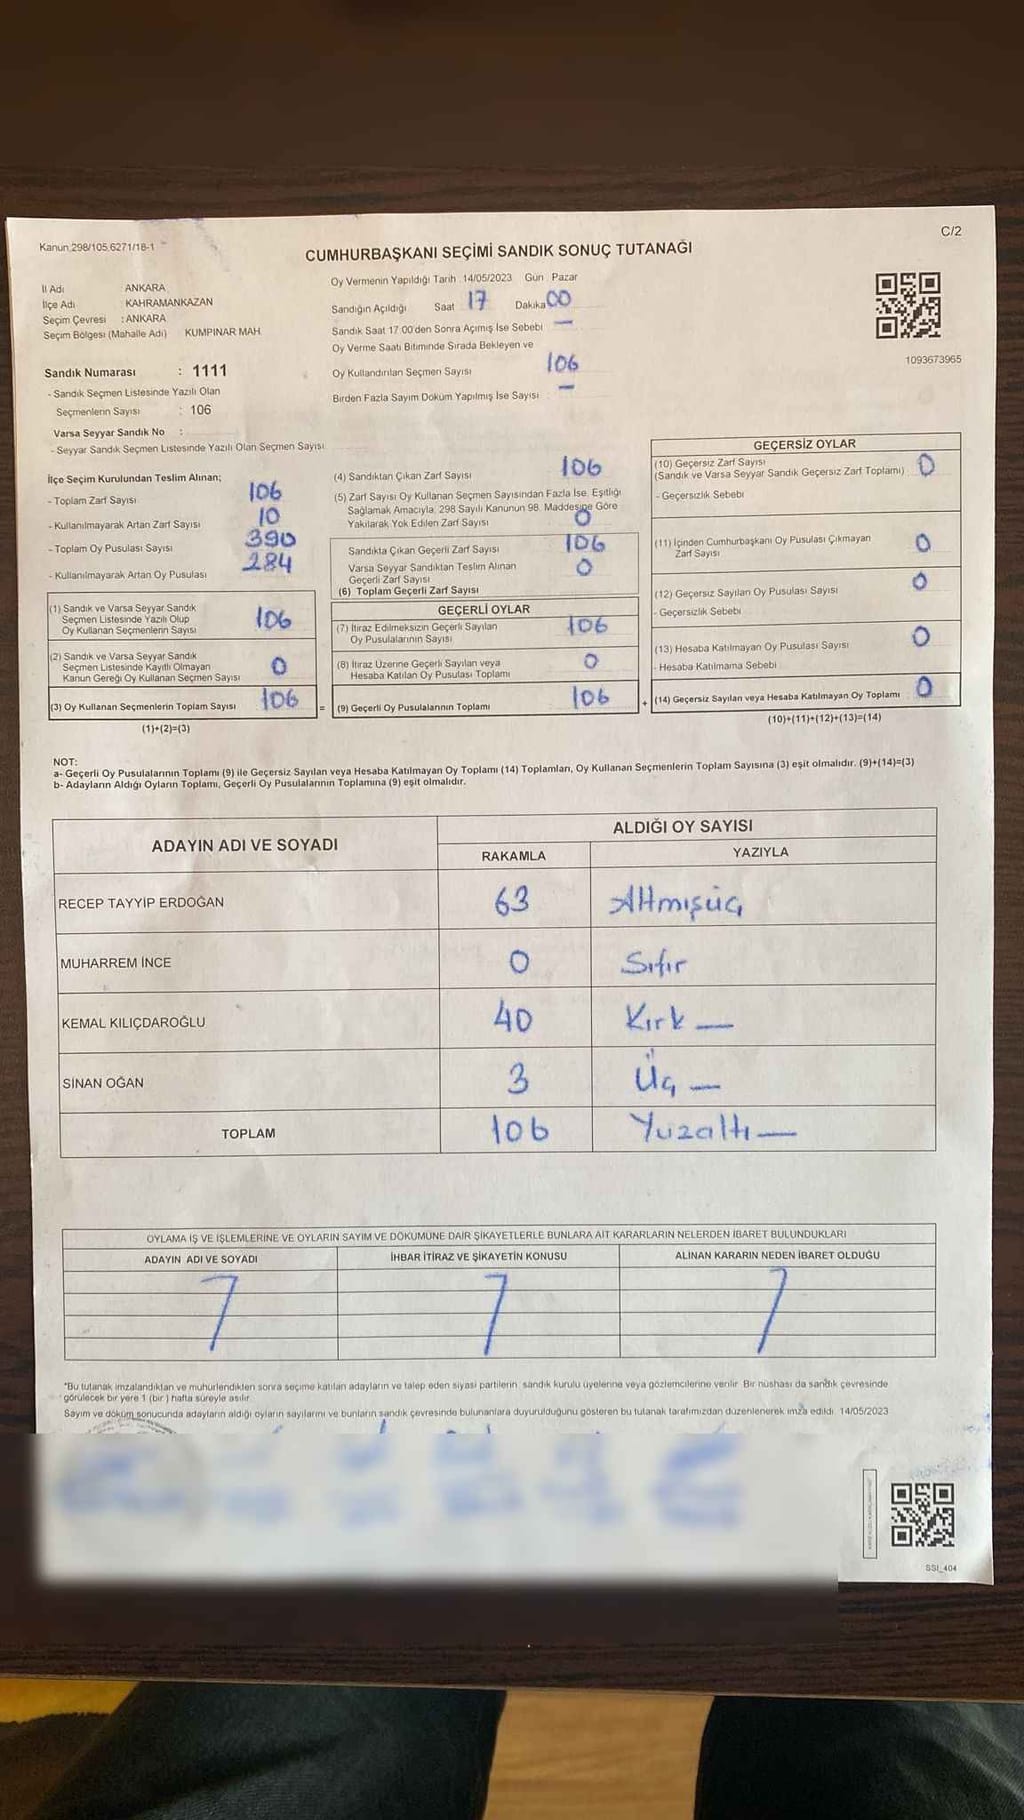 Kanun 298/105,6271/18-1
C/2
CUMHURBAŞKANI SEÇİMİ SANDIK SONUÇ TUTANAĞI
İl Adı ANKARA
İlçe Adı : KAHRAMANKAZAN
Seçim Çevresi : ANKARA
Seçim Bölgesi (Mahalle Adı) KUMPINAR MAH.
Oy Vermenin Yapıldığı Tarih : 14/05/2023 Gün Pazar
Sandığın Açıldığı Saat 17 Dakika 00
Sandık Saat 17 00'den Sonra Açımış İse Sebebi —
Oy Verme Saati Bitiminde Sırada Bekleyen ve
Oy Kullandırılan Seçmen Sayısı 106
Birden Fazla Sayım Döküm Yapılmış İse Sayısı : —
1093673965
Sandık Numarası : 1111
- Sandık Seçmen Listesinde Yazılı Olan
Seçmenlerin Sayısı : 106
Varsa Seyyar Sandık No :
- Seyyar Sandık Seçmen Listesinde Yazılı Olan Seçmen Sayısı
İlçe Seçim Kurulundan Teslim Alınan;
- Toplam Zarf Sayısı 106
- Kullanılmayarak Artan Zarf Sayısı 10
- Toplam Oy Pusulası Sayısı 390
- Kullanılmayarak Artan Oy Pusulası 284
(1) Sandık ve Varsa Seyyar Sandık
Seçmen Listesinde Yazılı Olup
Oy Kullanan Seçmenlerin Sayısı 106
(2) Sandık ve Varsa Seyyar Sandık
Seçmen Listesinde Kayıtlı Olmayan
Kanun Gereği Oy Kullanan Seçmen Sayısı 0
(3) Oy Kullanan Seçmenlerin Toplam Sayısı 106 =
(1)+(2)=(3)
(4) Sandıktan Çıkan Zarf Sayısı 106
(5) Zarf Sayısı Oy Kullanan Seçmen Sayısından Fazla İse, Eşitliği
Sağlamak Amacıyla, 298 Sayılı Kanunun 98. Maddesine Göre
Yakılarak Yok Edilen Zarf Sayısı 0
Sandıkta Çıkan Geçerli Zarf Sayısı 106
Varsa Seyyar Sandıktan Teslim Alınan
Geçerli Zarf Sayısı 0
(6) Toplam Geçerli Zarf Sayısı
GEÇERLİ OYLAR
(7) İtiraz Edilmeksizin Geçerli Sayılan
Oy Pusulalarının Sayısı 106
(8) İtiraz Üzerine Geçerli Sayılan veya
Hesaba Katılan Oy Pusulası Toplamı 0
(9) Geçerli Oy Pusulalarının Toplamı 106 +
GEÇERSİZ OYLAR
(10) Geçersiz Zarf Sayısı
(Sandık ve Varsa Seyyar Sandık Geçersiz Zarf Toplamı) 0
- Geçersizlik Sebebi
(11) İçinden Cumhurbaşkanı Oy Pusulası Çıkmayan
Zarf Sayısı 0
(12) Geçersiz Sayılan Oy Pusulası Sayısı 0
- Geçersizlik Sebebi
(13) Hesaba Katılmayan Oy Pusulası Sayısı 0
- Hesaba Katılmama Sebebi
(14) Geçersiz Sayılan veya Hesaba Katılmayan Oy Toplamı 0
(10)+(11)+(12)+(13)=(14)
NOT:
a- Geçerli Oy Pusulalarının Toplamı (9) ile Geçersiz Sayılan veya Hesaba Katılmayan Oy Toplamı (14) Toplamları, Oy Kullanan Seçmenlerin Toplam Sayısına (3) eşit olmalıdır. (9)+(14)=(3)
b- Adayların Aldığı Oyların Toplamı, Geçerli Oy Pusulalarının Toplamına (9) eşit olmalıdır.
ADAYIN ADI VE SOYADI
ALDIĞI OY SAYISI
RAKAMLA YAZIYLA
RECEP TAYYİP ERDOĞAN 63 Altmışüç
MUHARREM İNCE 0 Sıfır
KEMAL KILIÇDAROĞLU 40 Kırk —
SİNAN OĞAN 3 Üç —
TOPLAM 106 Yüzaltı —
OYLAMA İŞ VE İŞLEMLERİNE VE OYLARIN SAYIM VE DÖKÜMÜNE DAİR ŞİKAYETLERLE BUNLARA AİT KARARLARIN NELERDEN İBARET BULUNDUKLARI
ADAYIN ADI VE SOYADI İHBAR İTİRAZ VE ŞİKAYETİN KONUSU ALINAN KARARIN NEDEN İBARET OLDUĞU
*Bu tutanak imzalandıktan ve mühürlendikten sonra seçime katılan adayların ve talep eden siyasi partilerin sandık kurulu üyelerine veya gözlemcilerine verilir. Bir nüshası da sandık çevresinde
görülecek bir yere 1 (bir) hafta süreyle asılır.
Sayım ve döküm sonucunda adayların aldığı oyların sayılarını ve bunların sandık çevresinde bulunanlara duyurulduğunu gösteren bu tutanak tarafımızdan düzenlenerek imza edildi. 14/05/2023
SSI_404